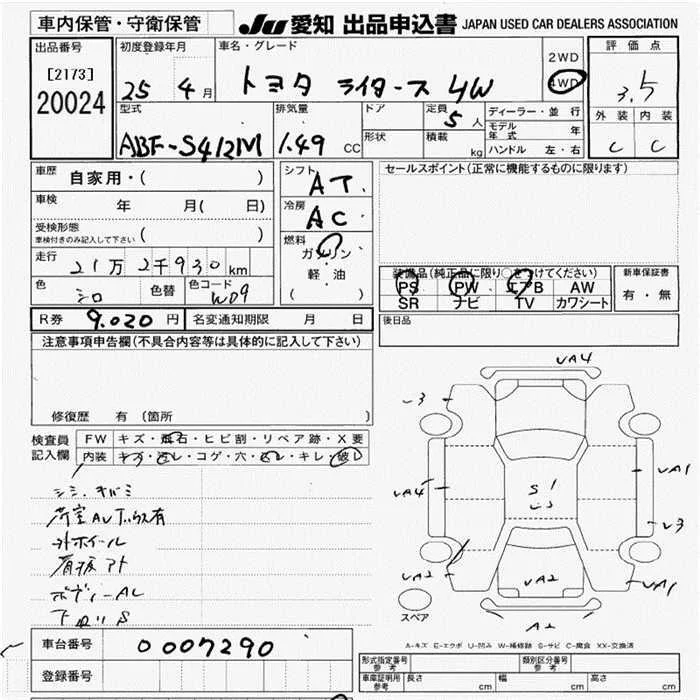 車内保管・守衛保管
JU 愛知 出品申込書 JAPAN USED CAR DEALERS ASSOCIATION
出品番号
[2173]
20024
初度登録年月
25 4月
車名・グレード
トヨタ ライタース 4W
2WD
4WD
評価点
3.5
外装 内装
C C
型式
ABF-S412M
排気量
1.49 CC
ドア
形状
定員
5人
積載
kg
ディーラー・並行
モデル年式 年
ハンドル 左・右
車歴 自家用・( )
車検 年 月( 日)
受検形態
車検付きのみ記入して下さい ( )
走行 21万2千930km
色 シロ 色替 色コード W09
シフト AT
冷房 AC
燃料
ガソリン
軽油
( )
セールスポイント(正常に機能するものに限ります)
装備品(純正品に限り○をつけてください)
PS PW エアB AW
SR ナビ TV カワシート
新車保証書
有・無
R券 9.020円
名変通知期限 月 日
後日品
注意事項申告欄(不具合内容等は具体的に記入して下さい)
修復歴 有 (箇所
検査員
記入欄
FW キズ・飛石・ヒビ割・リペア跡・X要
内装 キズ・汚レ・コゲ・穴・スレ・キレ・破レ
外ホイール
ボディーAL
UA4
UA4
S1
UA1
UA2
UA2
UA1
A2
スペア
A-キズ E-エクボ U-凹み W-補修跡 S-サビ C-腐食 XX-交換済
車台番号 0007290
登録番号
形式指定番号
参考
類別区分番号
参考
車庫証明用
参考
長さ cm 幅 cm 高さ cm